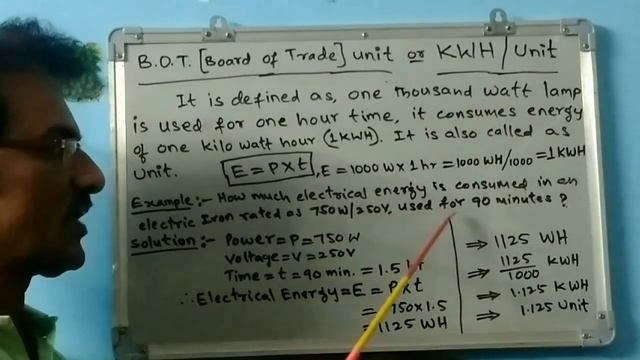 B.O.T. [Board of Trade] unit or KWH/Unit
It is defined as, one thousand watt lamp
is used for one hour time, it consumes energy
of one kilo watt hour (1KWH). It is also called as
unit. E = P×t, E = 1000 W × 1 hr = 1000 WH/1000 = 1KWH
Example:- How much electrical energy is consumed in an
electric Iron rated as 750W/250V, used for 90 minutes?
Solution:- Power = P = 750 W
Voltage = V = 250V
Time = t = 90 min. = 1.5 hr
∴ Electrical Energy = E = P×t
= 750×1.5
= 1125 WH
⇒ 1125 WH
⇒ 1125/1000 KWH
⇒ 1.125 KWH
⇒ 1.125 Unit